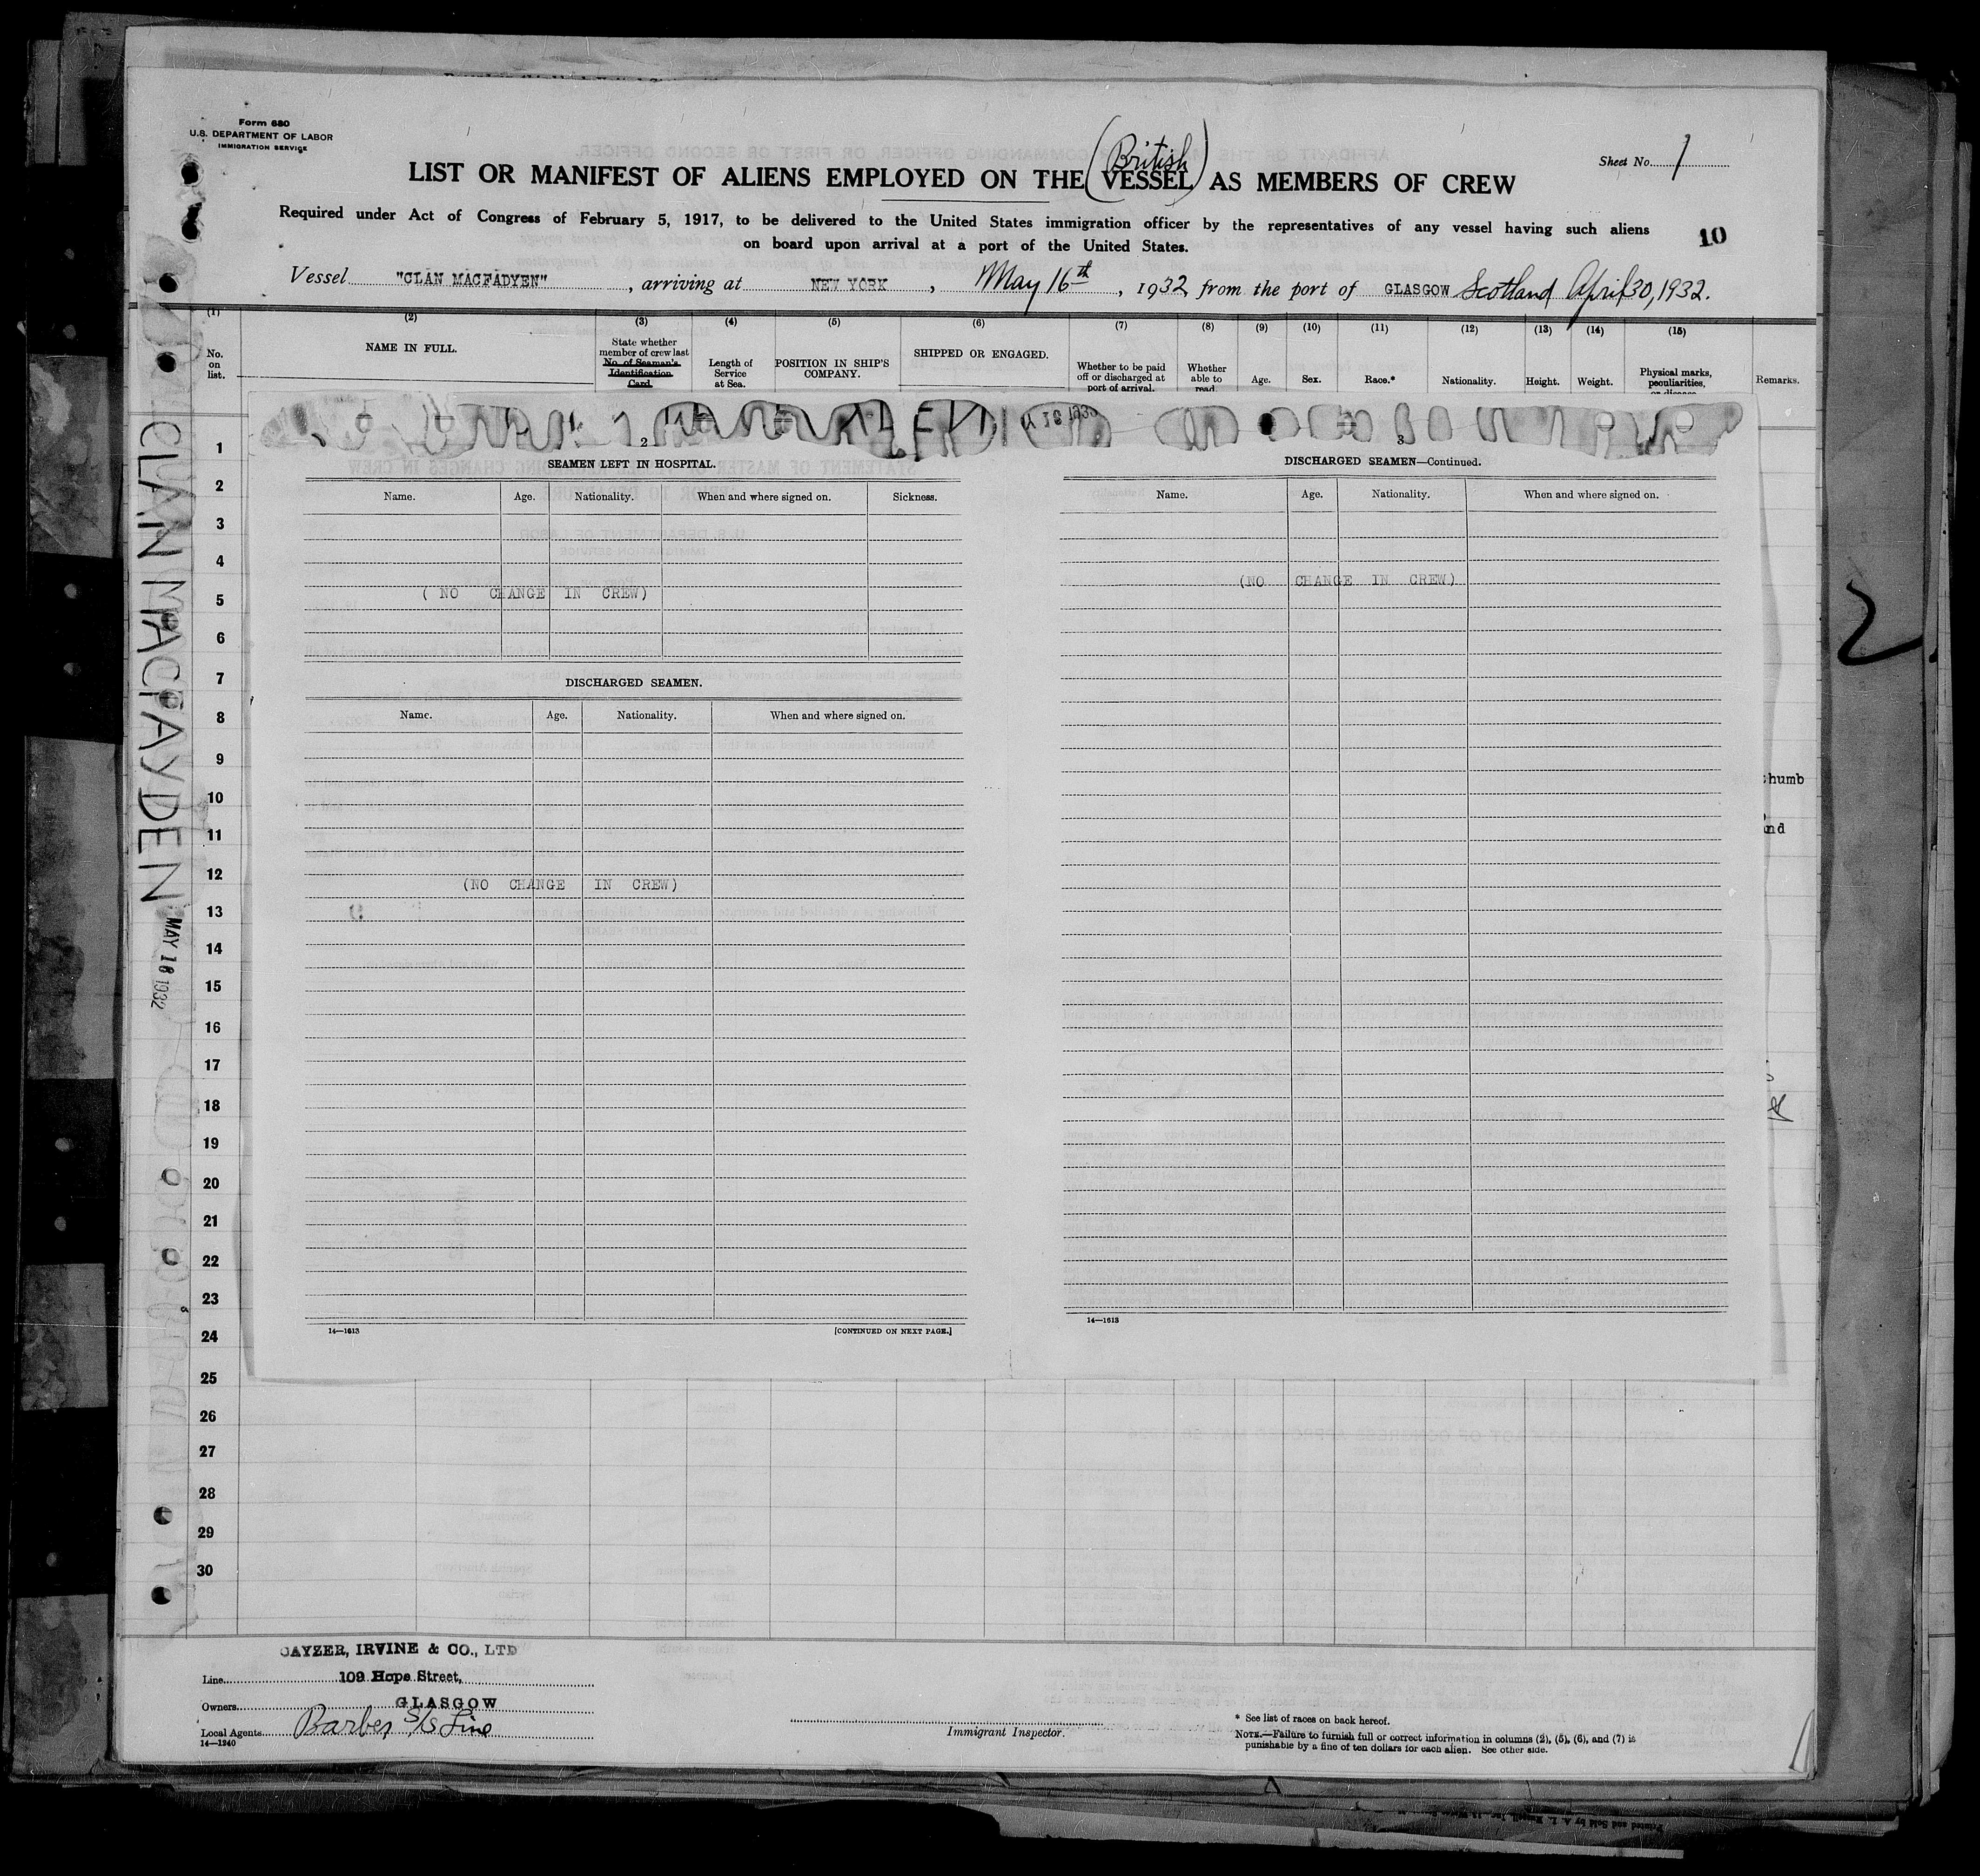 Form 680
U.S. DEPARTMENT OF LABOR
IMMIGRATION SERVICE
(British)
Sheet No. 1
LIST OR MANIFEST OF ALIENS EMPLOYED ON THE VESSEL AS MEMBERS OF CREW
Required under Act of Congress of February 5, 1917, to be delivered to the United States immigration officer by the representatives of any vessel having such aliens
on board upon arrival at a port of the United States.
10
Vessel "CLAN MACFADYEN", arriving at NEW YORK, May 16th, 1932 from the port of GLASGOW Scotland April 30, 1932.
(1) (2) (3) (4) (5) (6) (7) (8) (9) (10) (11) (12) (13) (14) (15)
No. on list.
NAME IN FULL.
State whether member of crew last
No. of Seaman's Identification Card.
Length of Service at Sea.
POSITION IN SHIP'S COMPANY.
SHIPPED OR ENGAGED.
Whether to be paid off or discharged at port of arrival.
Whether able to read.
Age.
Sex.
Race.*
Nationality.
Height.
Weight.
Physical marks, peculiarities, or disease
Remarks.
CLAN MACFAYDEN
MAY 18 1932
1
2
3
4
5
6
7
8
9
10
11
12
13
14
15
16
17
18
19
20
21
22
23
24
25
26
27
28
29
30
2
SEAMEN LEFT IN HOSPITAL.
Name. Age. Nationality. When and where signed on. Sickness.
( NO CHANGE IN CREW)
DISCHARGED SEAMEN.
Name. Age. Nationality. When and where signed on.
(NO CHANGE IN CREW)
14—1613
[CONTINUED ON NEXT PAGE.]
3
DISCHARGED SEAMEN—Continued.
Name. Age. Nationality. When and where signed on.
(NO CHANGE IN CREW)
14—1613
humb
and
2
CAYZER, IRVINE & CO., LTD
Line 109 Hope Street,
Owners GLASGOW
Local Agents Barber S/S Line
14—1240
Immigrant Inspector.
* See list of races on back hereof.
NOTE.—Failure to furnish full or correct information in columns (2), (5), (6), and (7) is
punishable by a fine of ten dollars for each alien. See other side.